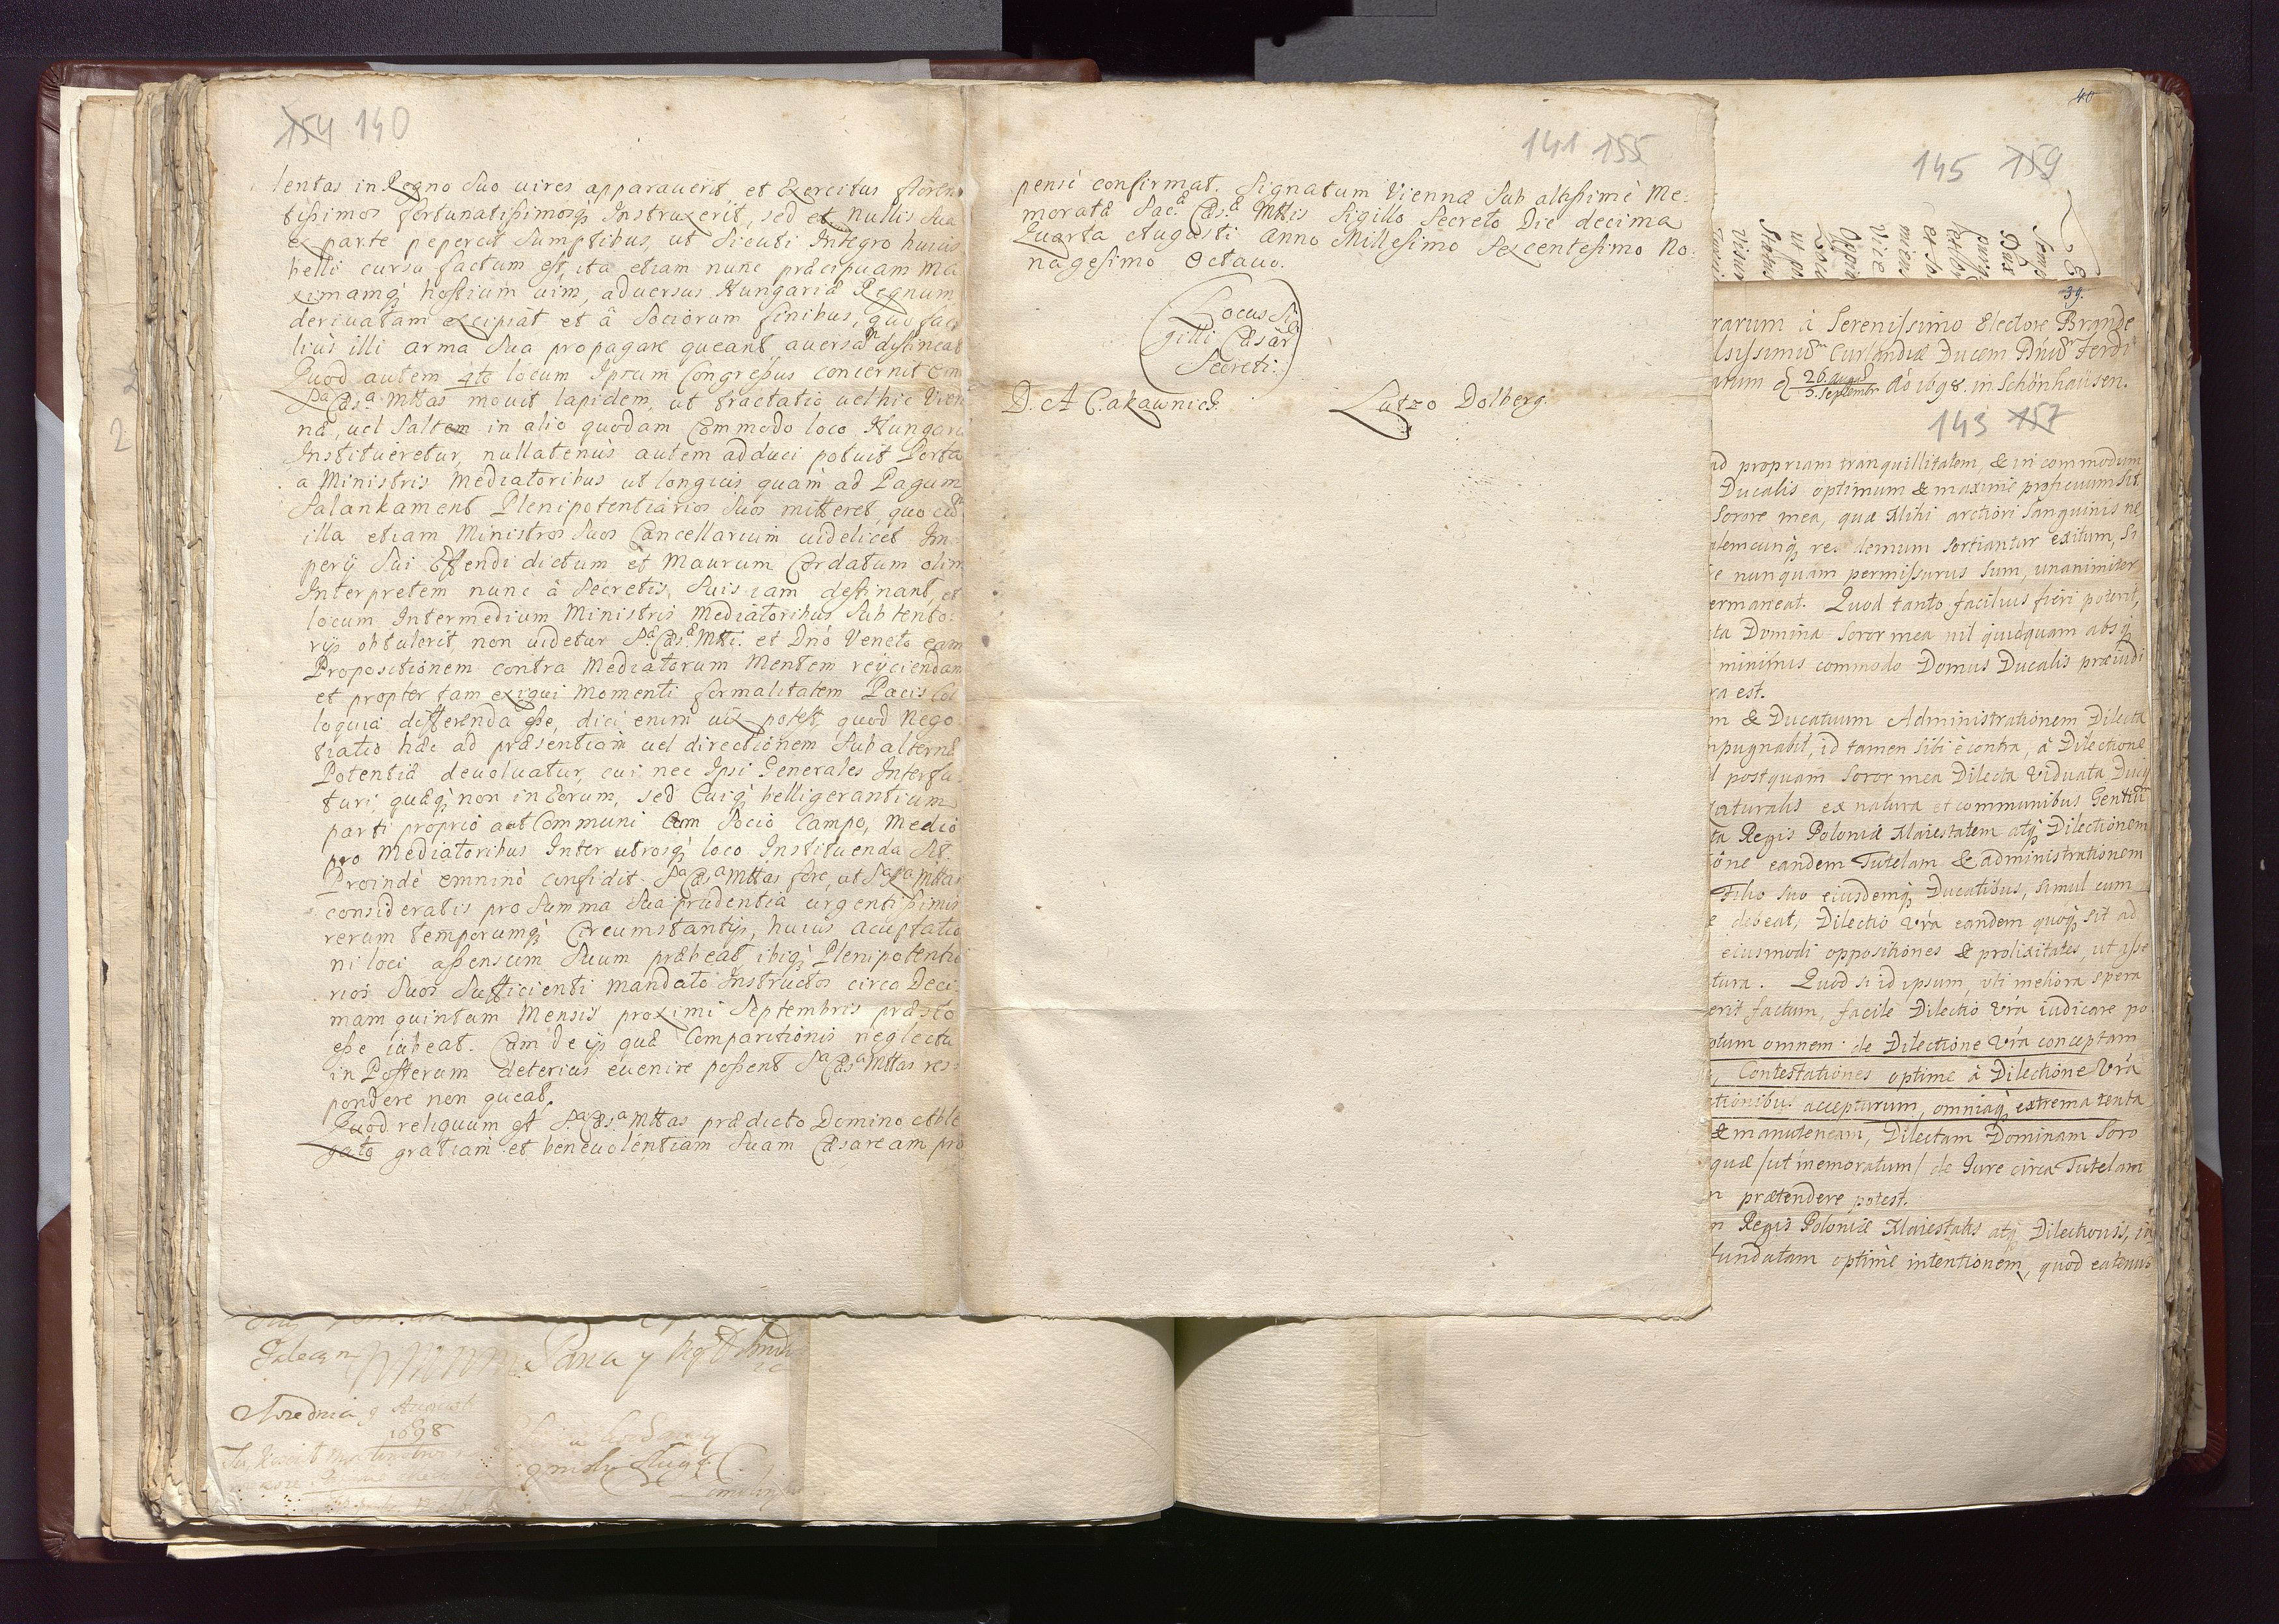 154 140
lentas in Regno Suo uires apparauerit et Exercitus floren
tissimos fortunatissimosq; Instruxerit, sed et nullis Sua
ex parte pepercit Sumptibus, ut Sicuti Integro huius
belli cursu factum est, ita etiam nunc præcipuam ma
ximamq; hostium uim, aduersus Hungariæ Regnum
deriuatam excipiat et â Sociorum finibus, quo faci
liùs illi arma Sua propagare queant, auersam distineat
Quod autem 4to locum Ipsum Congressus concernit om
Sa Cæsa Mttas mouit lapidem, ut tractatio uel hic Vien
næ, uel Saltem in alio quodam Commodo loco Hungari
Institueretur, nullatenùs autem adduci potuit Porta
a Ministris Mediatoribus ut longius quàm ad Pagum
Salankament Plenipotentiarios Suos mitteret, quo cùm
illa etiam Ministros Suos Cancellarium uidelicet Im
perij Sui Effendi dictum et Maurum Cordatum olim
Interpretem nunc â Secretis Suis iam destinant, et
locum Intermedium Ministris Mediatoribus Sub tento
rijs obtulerit, non uidetur Sæ Cæsæ Mtti. et Dno Veneto eam
Propositionem contra Mediatorum Mentem reijciendam
et propter tam exigui momenti formalitatem Pacis Col
loquia differenda esse, dici enim uix potest, quod Nego
tiatio hæc ad præsentiam uel directionem Subalternæ
Potentiæ deuoluatur, cui nec Ipsi Generales Interfu
turi, quæq; non in eorum, sed Cuiq; belligerantium
parti proprio aut Communi Cum Socio Campo, medio
pro Mediatoribus Inter utrosq; loco Instituenda Sit.
Proindè omninò confidit Sa Cæsa Mttas fore, ut Sa Ra Mttas
consideratis pro Summa Sua prudentia urgentissimis
rerum temporumq; Circumstantijs, huius acceptatio
ni loci assensum Suum præbeat ibiq; Plenipotentia
rios Suos Sufficienti mandato Instructos circa Deci
mam quintam Mensis proximi Septembris præsto
esse iubeat. Cùm de ijs quæ Comparitionis neglectu
in Posterum deterius euenire possent Sa Cæsa Mttas res
pondere non queat.
Quod reliquum est Sa Cæsa Mttas prædicto Domino Able
gato gratiam et beneuolentiam Suam Cæsaream pro
141 155
pensè confirmat. Signatum Viennæ Sub altissimè Me:
moratæ Sacæ Cæsæ Mttis Sigillo Secreto Die decima
Quarta Augusti Anno Millesimo Sexcentesimo No:
nagesimo Octauo.
Locus Si
gilli Cæsar
Secreti.
D. A C.akawnich.
Lutzo Dolberg.
40
145 159
39.
rarum à Serenissimo Electore Brande
lsissimum Curlandiæ Ducem Dnum Ferdi
arum d 26. August / 5. Septembr Ao 1698. in Schönhausen.
143 157
ad propriam tranquillitatem, & in commodum
Ducalis optimum & maximè proficuum sit
Sorore mea, quæ Mihi arctiori Sanguinis ne
alemcunq; res demum sortiantur exitum, Si
e nunquam permissurus Sum, unanimiter
ermaneat. Quod tanto facilius fieri poterit,
ta Domina Soror mea nil quidquam absq;
minimis commodo Domus Ducalis præiudi
ra est.
m & Ducatuum Administrationem Dilecta
npugnabit, id tamen sibi è contra, à Dilectione
l postquam Soror mea Dilecta Viduata Duciss
Naturalis ex natura et communibus Gentiu
ta Regis Poloniæ Maiestatem atq; Dilectionem
one eandem Tutelam & administrationem
Filio suo eiusdemq; Ducatibus, simul cum
e debeat, Dilectio Vra eandem quoq; sit ad
eiusmodi oppositiones & prolixitates, ut ipse
tura. Quod si id ipsum, uti meliora spera
erit factum, facile Dilectio Vra iudicare po
otum omnem de Dilectione Vra conceptam
, Contestationes optime à Dilectione Vra
ationibus accepturum, omniaq; extrema tenta
& manuteneam, Dilectam Dominam Soro
quæ /ut memoratum/ de Jure circa Tutelam
n prætendere potest.
m Regis Poloniæ Maiestatis atq; Dilectionis, in
fundatam optimè intentionem, quod eatenus
Pana y
9 August
1698